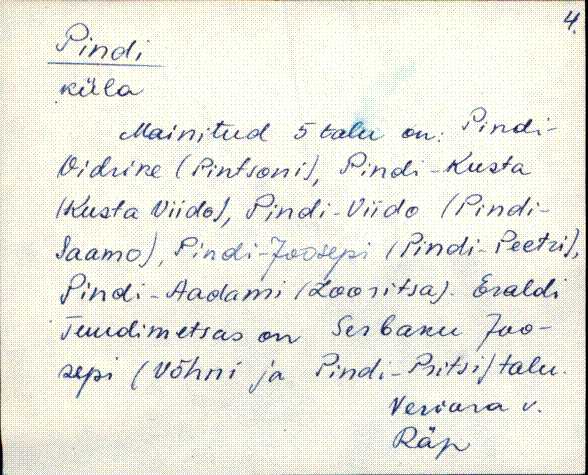 4.
Pindi
küla
Mainitud 5 talu on: Pindi-
Vidrike (Pintsoni), Pindi-Kusta
(Kusta Viido), Pindi-Viido (Pindi-
Saamo), Pindi-Joosepi (Pindi-Peetri),
Pindi-Aadami (Looritsa). Eraldi
Tuudimetsas on Serbaku Joo-
sepi (Võhni ja Pindi-Pritsi) talu.
Veriora v.
Räp